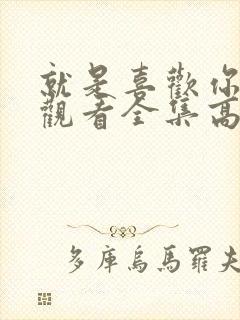 就是喜歡你
觀看全集高
多庫烏馬羅夫